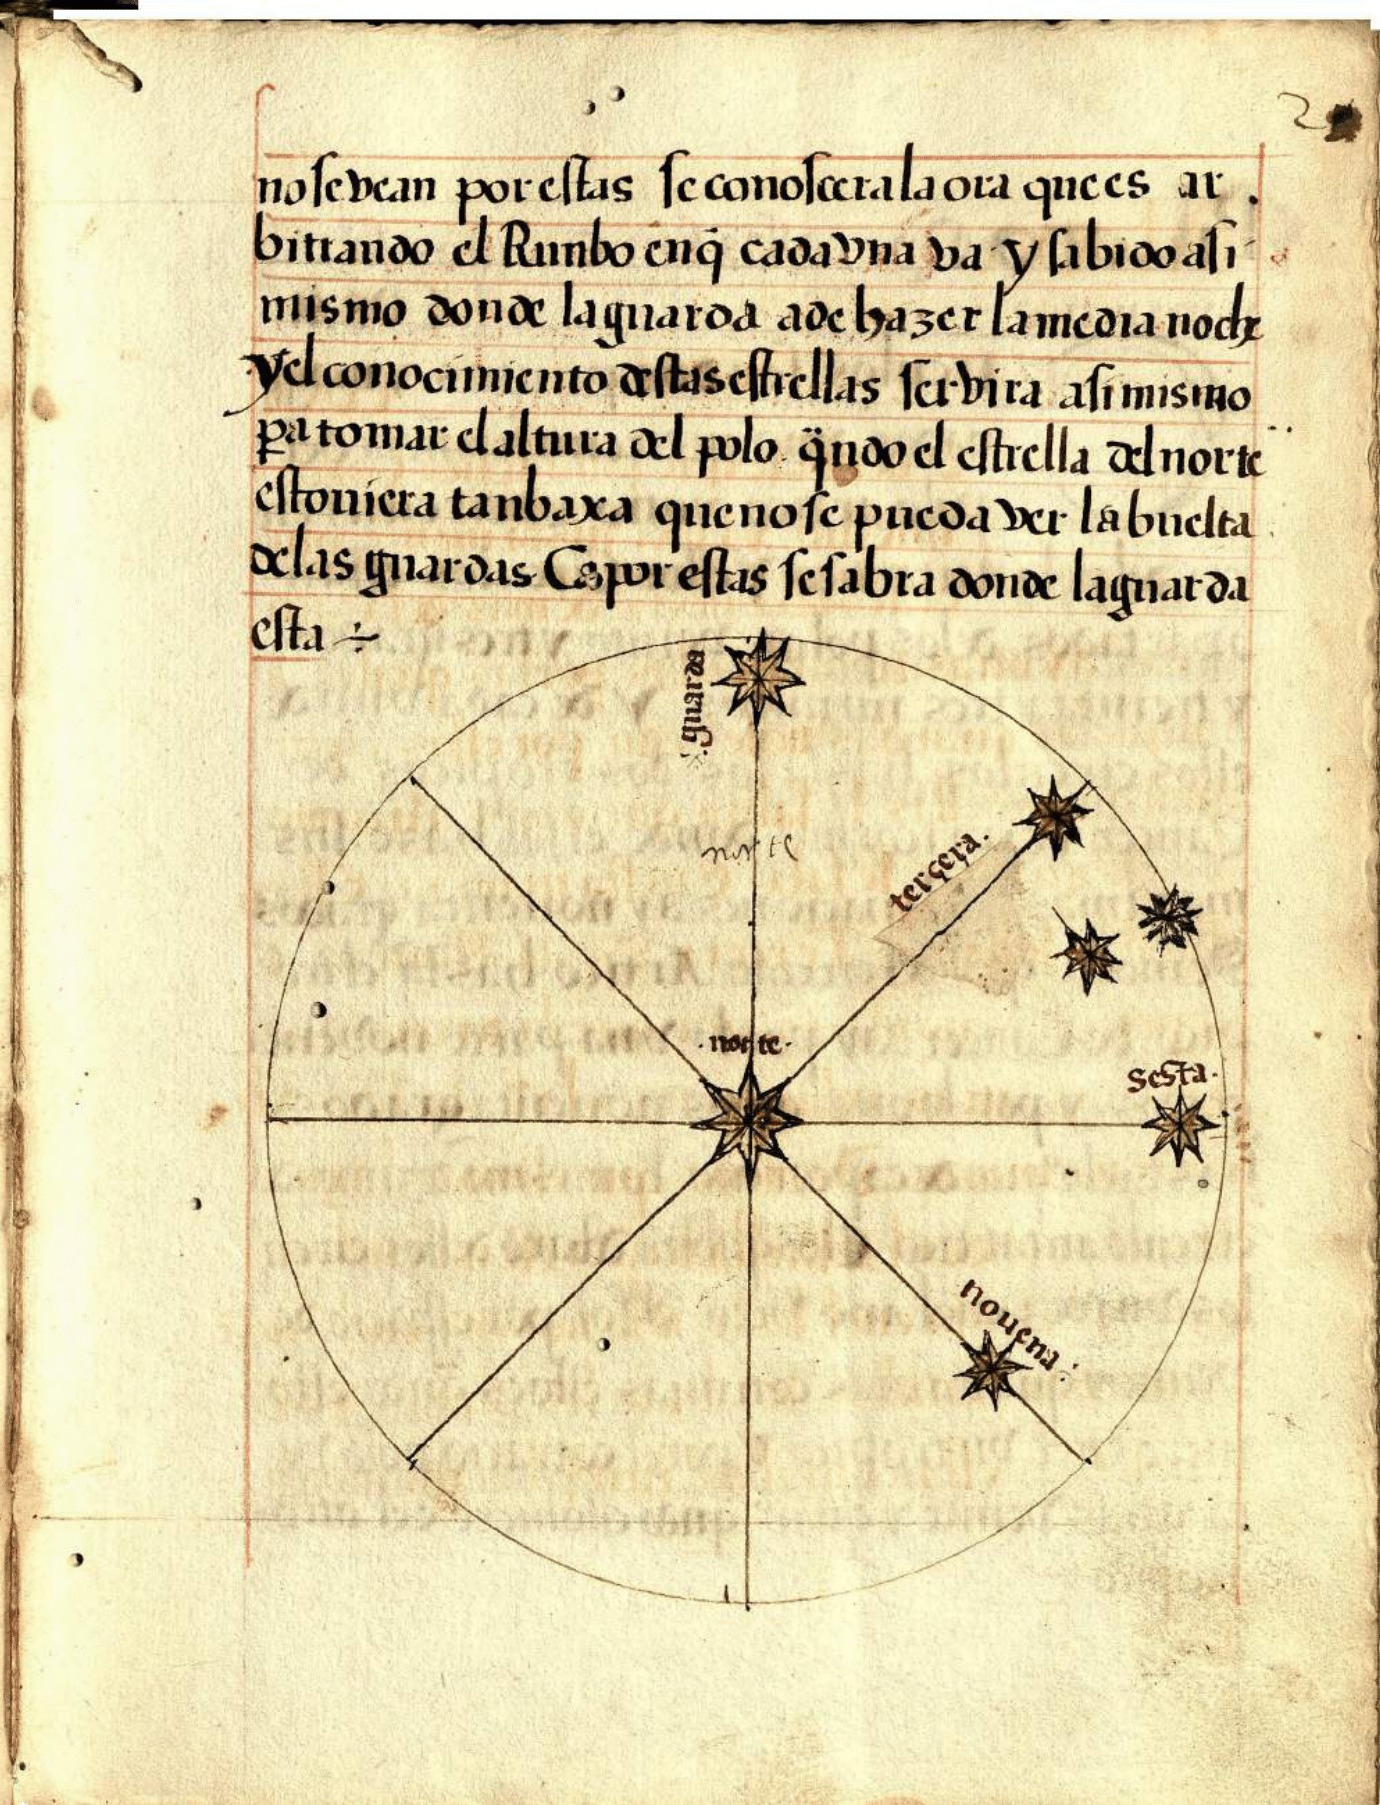 2
no se vean por estas se conoscera la ora que es ar
bitrando el Runbo en q̃ cada vna va y sabido asi
mismo donde la guarda a de hazer la media noche
y el conocimiento destas estrellas servira asi mismo
ꝑa tomar el altura del polo q̃ndo el estrella del norte
estouiera tan baxa que no se pueda ver la buelta
de las guardas Ca por estas se sabra donde la guarda
esta ÷
guarda
norte
terçera.
·norte·
sesta·
nouena